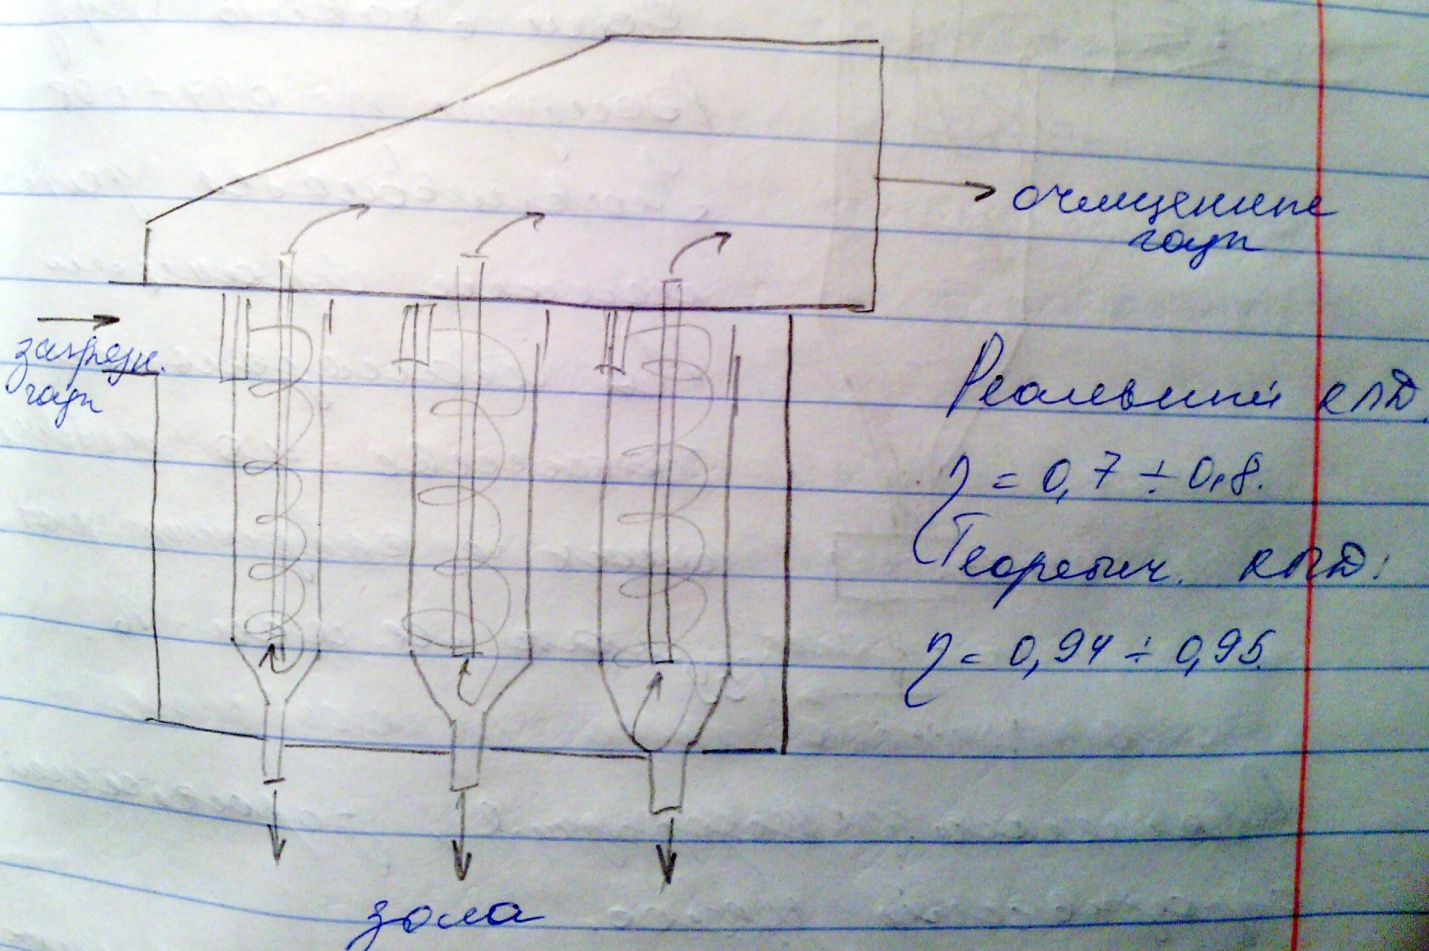 очищенные
газы
загрязн.
газы
Реальный КПД
η = 0,7 ÷ 0,8.
Теоретич. КПД:
η = 0,94 ÷ 0,95
зола